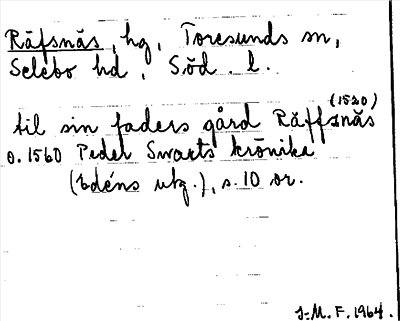 Räfsnäs, hg, Toresunds sn,
Selebo hd, Söd. l.
(1520)
til sin faders gård Räffsnäs
o. 1560 Peder Swarts krönika
(Edéns utg.), s. 10 or.
J.M.F. 1964.